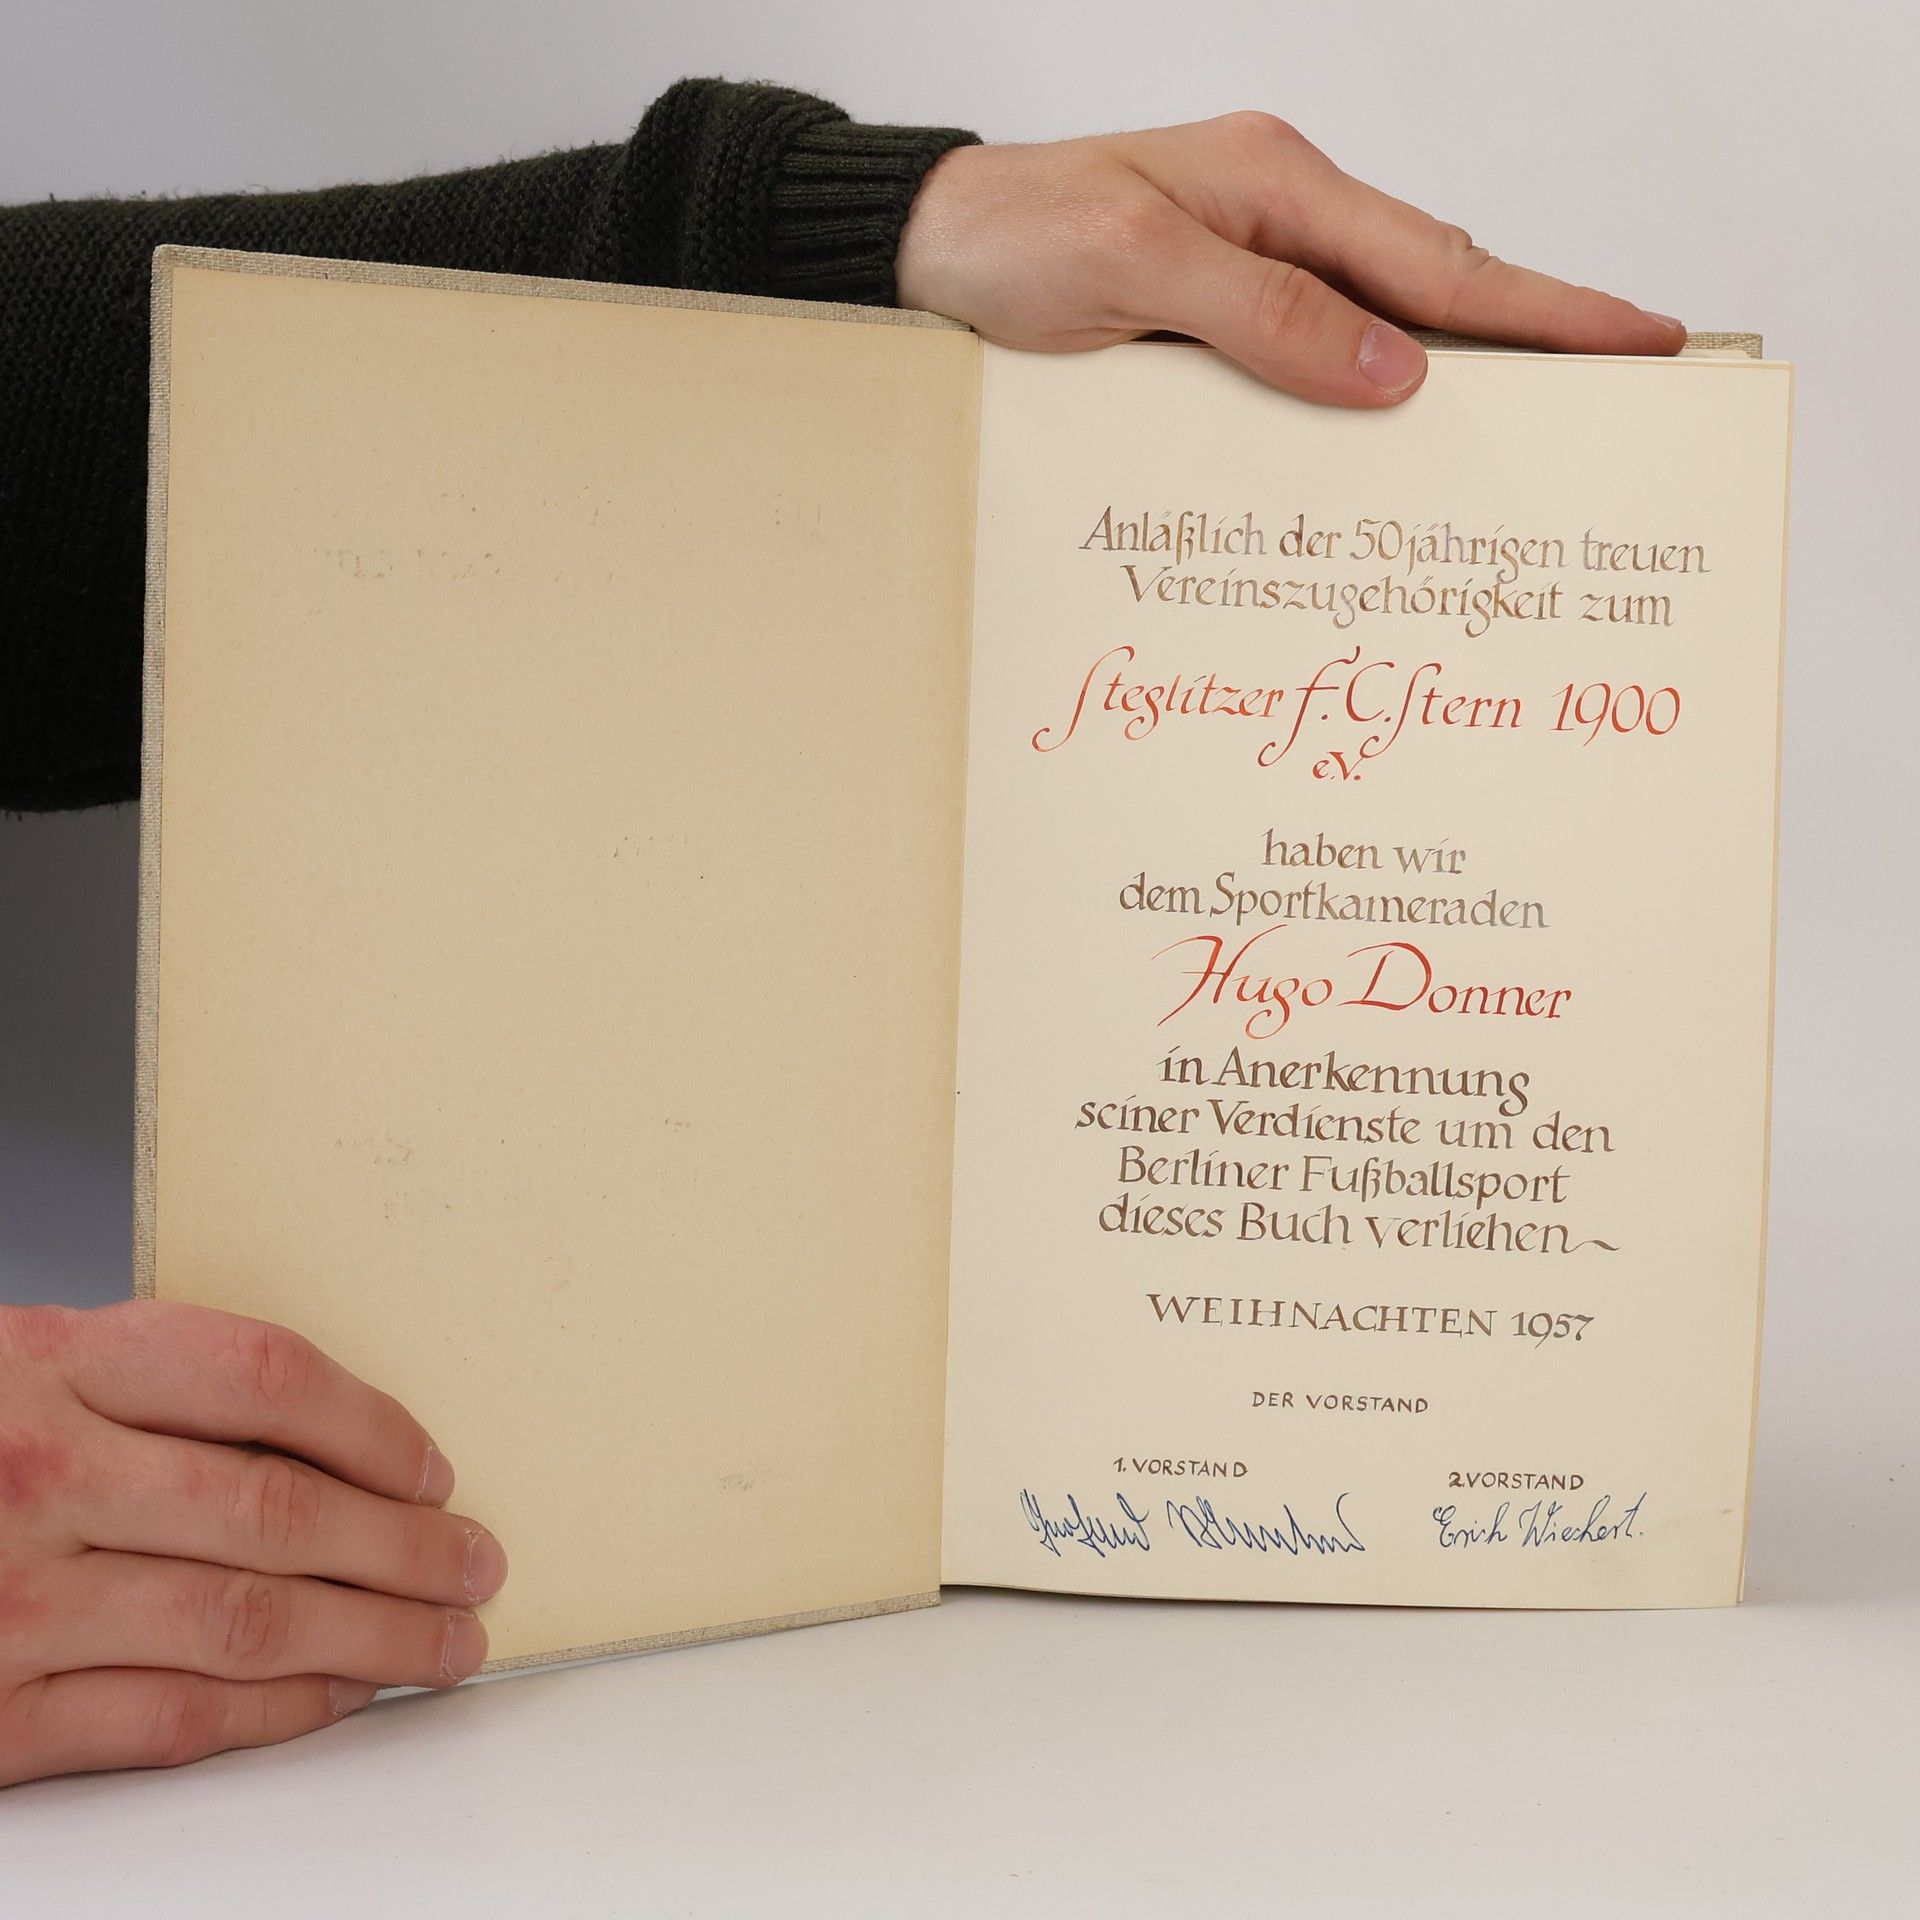 Anläßlich der 50jährigen treuen
Vereinszugehörigkeit zum
Steglitzer F.C. Stern 1900
e.V.
haben wir
dem Sportkameraden
Hugo Donner
in Anerkennung
seiner Verdienste um den
Berliner Fußballsport
dieses Buch verliehen~
WEIHNACHTEN 1957
DER VORSTAND
1. VORSTAND
2. VORSTAND
Erich Wiechert.